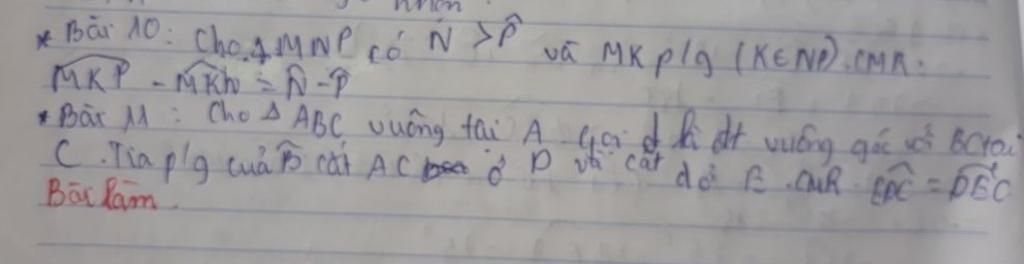 nhọn
* Bài 10: Cho Δ MNP có N̂ > P̂ và MK p/g (K∈NP). CMR:
MKP - MKN = N̂ - P̂
* Bài 11: Cho Δ ABC vuông tại A. Gọi d là đt vuông góc với BC tại
C. Tia p/g của B̂ cắt AC ở D và cắt d ở E. CMR. EDC = DEC
Bài làm